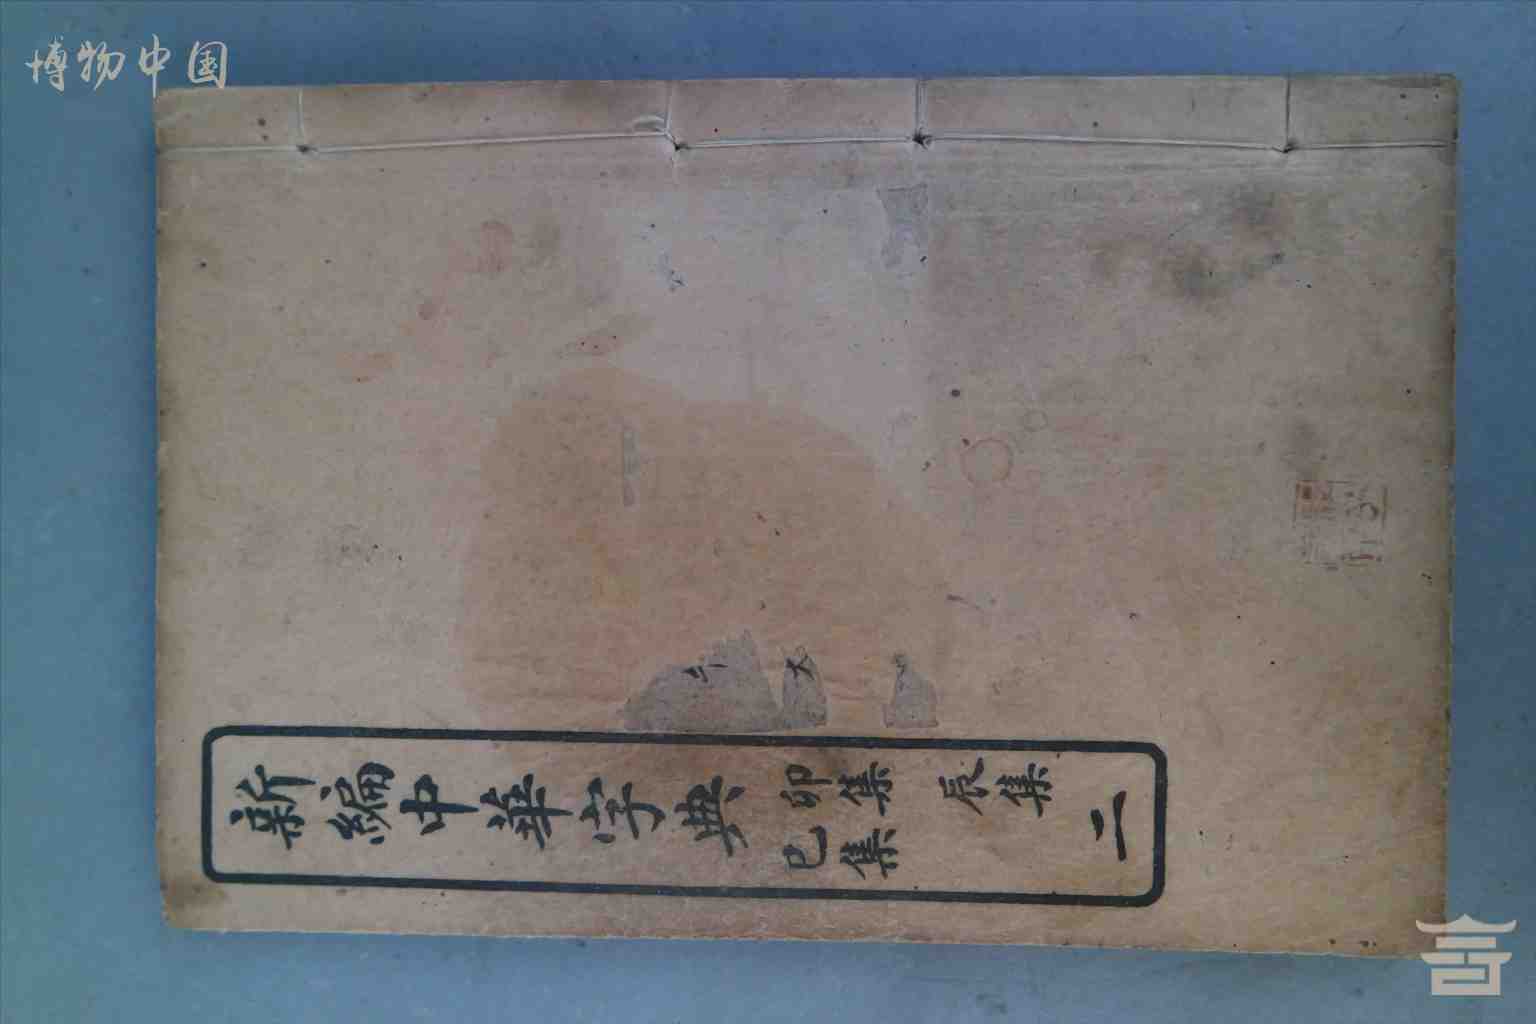 博物中国
新編中華字典
卯集 辰集
巳集
二
大